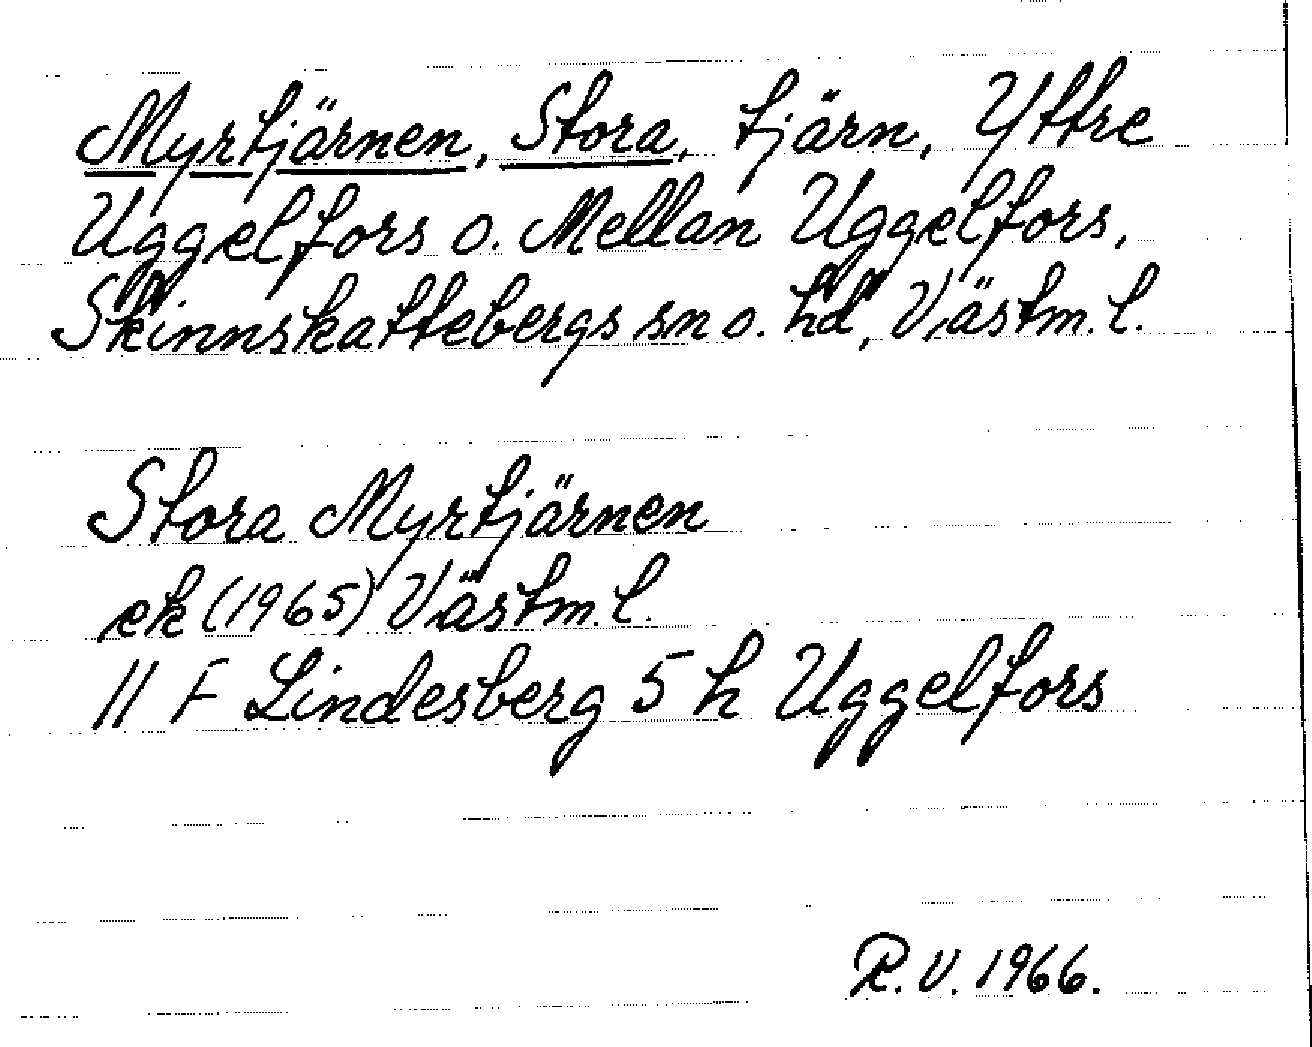 Myrtjärnen, Stora, tjärn, Yttre
Uggelfors o. Mellan Uggelfors,
Skinnskattebergs sn o. hd, Västm. l.
Stora Myrtjärnen
ek (1965) Västm. l.
11 F Lindesberg 5 h Uggelfors
R. V. 1966.